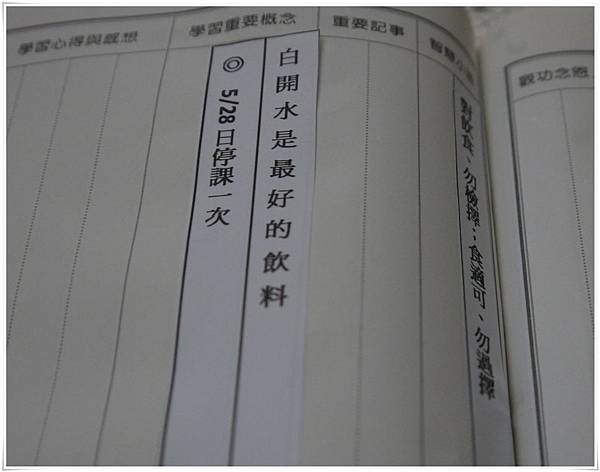 觀功念恩
智慧小語
對飲食、勿檢擇；食適可、勿過擇
重要記事
學習重要概念
白開水是最好的飲料
◎ 5/28日停課一次
學習心得與感想